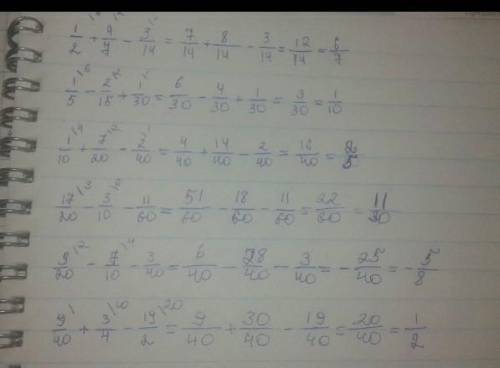 1/2 + 4/7 - 3/14 = 7/14 + 8/14 - 3/14 = 12/14 = 6/7
1/5 - 2/15 + 1/30 = 6/30 - 4/30 + 1/30 = 3/30 = 1/10
1/10 + 7/20 - 2/40 = 4/40 + 14/40 - 2/40 = 16/40 = 2/5
17/20 - 3/10 - 11/60 = 51/60 - 18/60 - 11/60 = 22/60 = 11/30
3/20 - 7/10 - 3/40 = 6/40 - 28/40 - 3/40 = - 25/40 = - 5/8
9/40 + 3/4 - 19/2 = 9/40 + 30/40 - 19/40 = 20/40 = 1/2